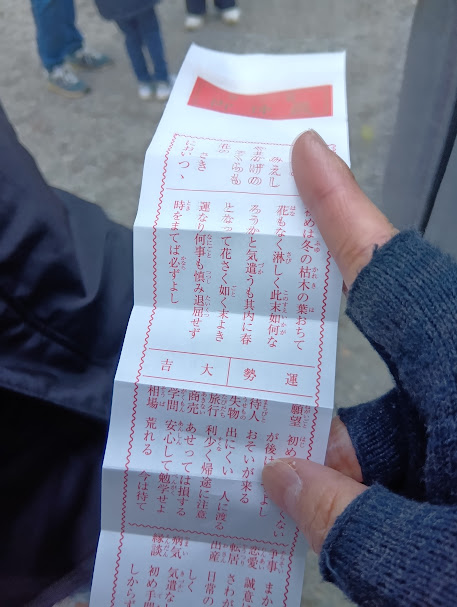 みえし
さくらも
さき
においつゝ
めは冬の枯木の葉おちて
花もなく淋しく此末如何な
ろうかと気遣うも其内に春
となって花さく如く末よき
運なり何事も慎み退屈せず
時をまてば必ずよし
運勢 大吉
願望 初め ない
が後は よし
待人 おそいが来る
失物 出にくい 人に渡る
旅行 利少く帰途に注意
商売 あせっては損する
学問 安心して勉学せよ
相場 荒れる 今は待て
争事 まか
恋愛 誠意
転居 さわが
出産 日常の
しく
病気 気遣な
縁談 初め手
しからず